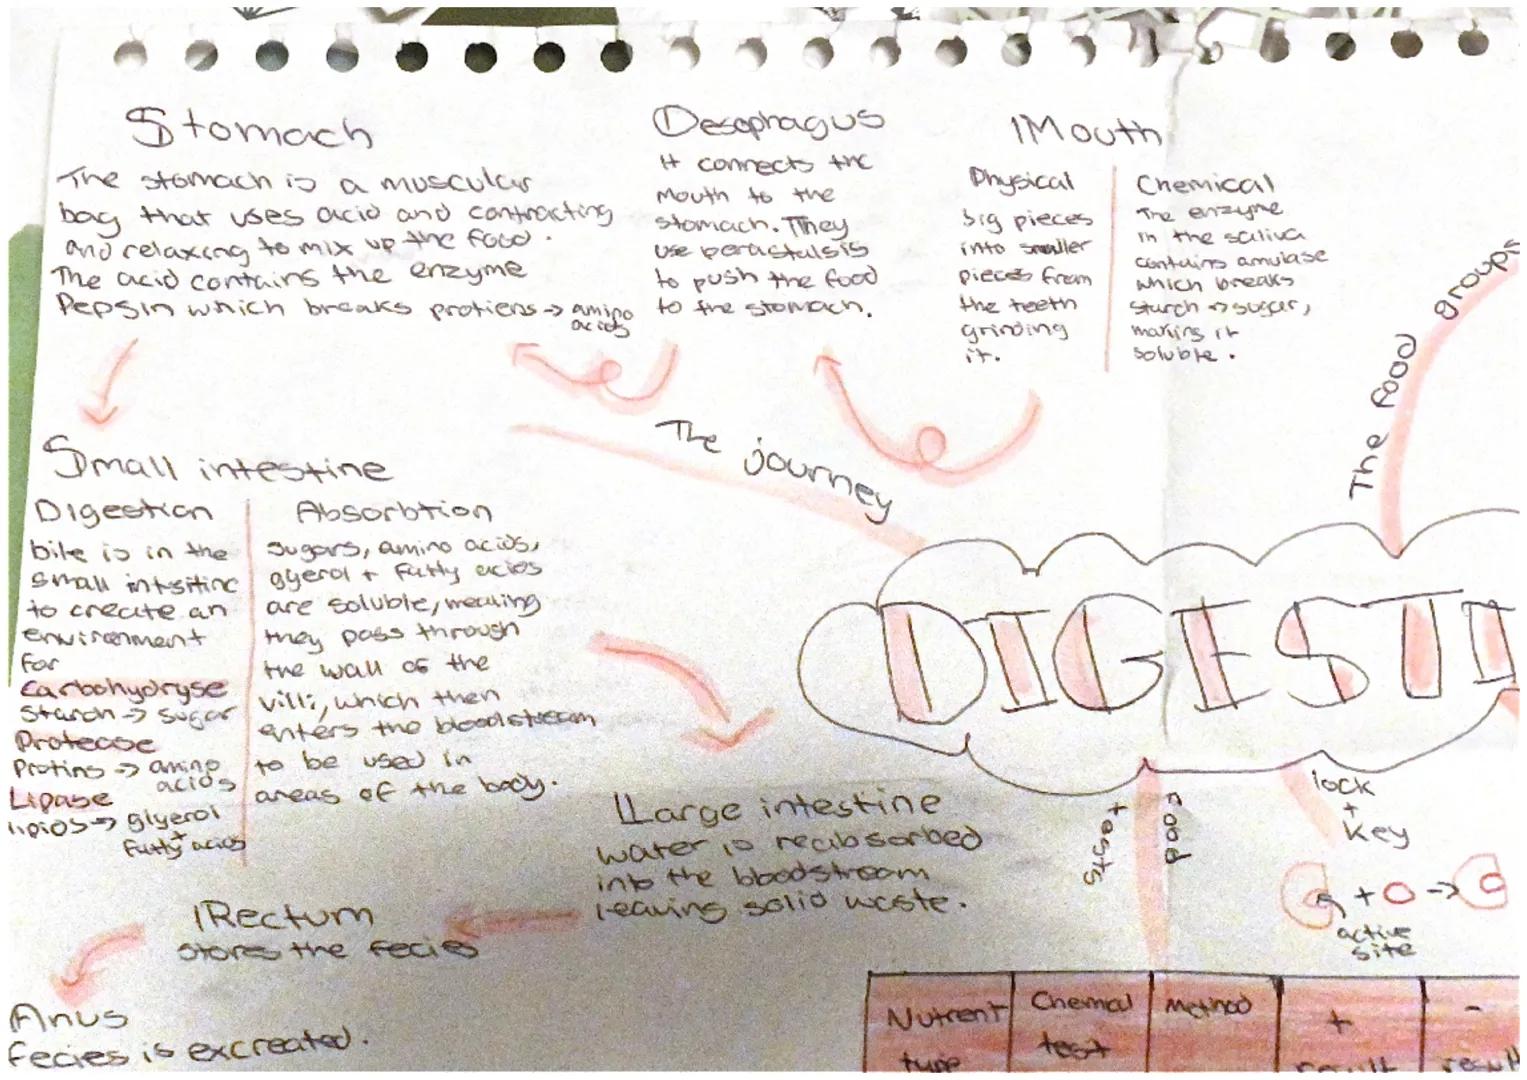 Stomach
The stomach is a muscular
bag that uses acid and contracting
and relaxing to mix up the food.
The acid contains the enzyme
Pepsin which breaks protiens → amino
acids
Oesophagus
It connects the
mouth to the
stomach. They
use perastalsis
to push the food
to the stomach.
Mouth
Physical
big pieces
into smaller
pieces from
the teeth
grinding
it.
Chemical
The enzyme
in the saliva
contains amulase
which breaks
starch → sugar,
making it
soluble.
The food groups
The journey
Small intestine
Digestion
bile is in the
small intsitine
to create an
environment
for
Carbohydryse
starch → sugar
Protease
Protins → amino
acids
Lipase
lipids → glyerol
+
fatty acids
Absorbtion
sugars, amino acids,
glyerol + fatty acids
are soluble, meaning
they pass through
the wall of the
villi, which then
enters the bloodstream
to be used in
areas of the body.
DIGESTI
Large intestine
water is reabsorbed
into the bloodstream
leaving solid waste.
food tests
lock
+
key
+ →
active
site
Rectum
stores the fecies
Anus
fecies is excreated.
Nutrient
type
Chemical
test
Method
+
result
-
result